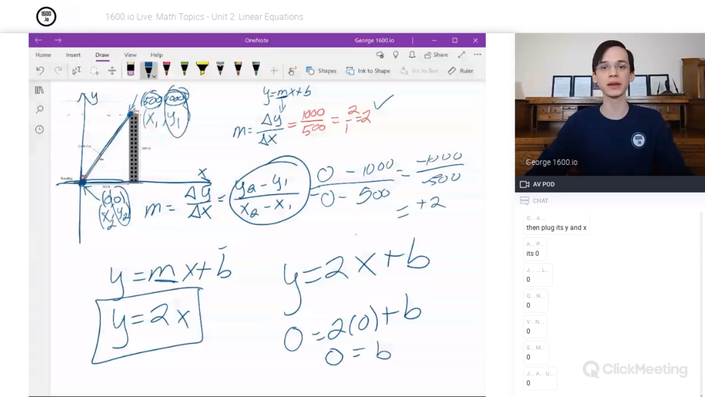 1600.io
1600.io Live: Math Topics - Unit 2: Linear Equations
OneNote
George 1600.io
Home Insert Draw View Help
Share
Shapes
Ink to Shape
Ink to Text
Ruler
y
(500, 1000)
x₁ y₁
x
(0,0)
x₂ y₂
y=mx+b
m = Δy/Δx = 1000/500 = 2/1 = 2 ✓
m = Δy/Δx = y₂-y₁/x₂-x₁ = 0-1000/0-500 = -1000/-500
= +2
y=mx+b
y=2x
y=2x+b
0=2(0)+b
0=b
George 1600.io
AV POD
CHAT
D... A...
then plug its y and x
A... P...
its 0
J... ... L...
0
G... N...
0
V... N...
0
S... M...
0
J... A... U...
0
ClickMeeting